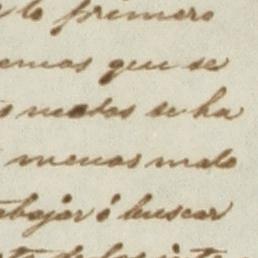 lo primero
emos que se
malos se ha
menos malo
abajar ó buscar